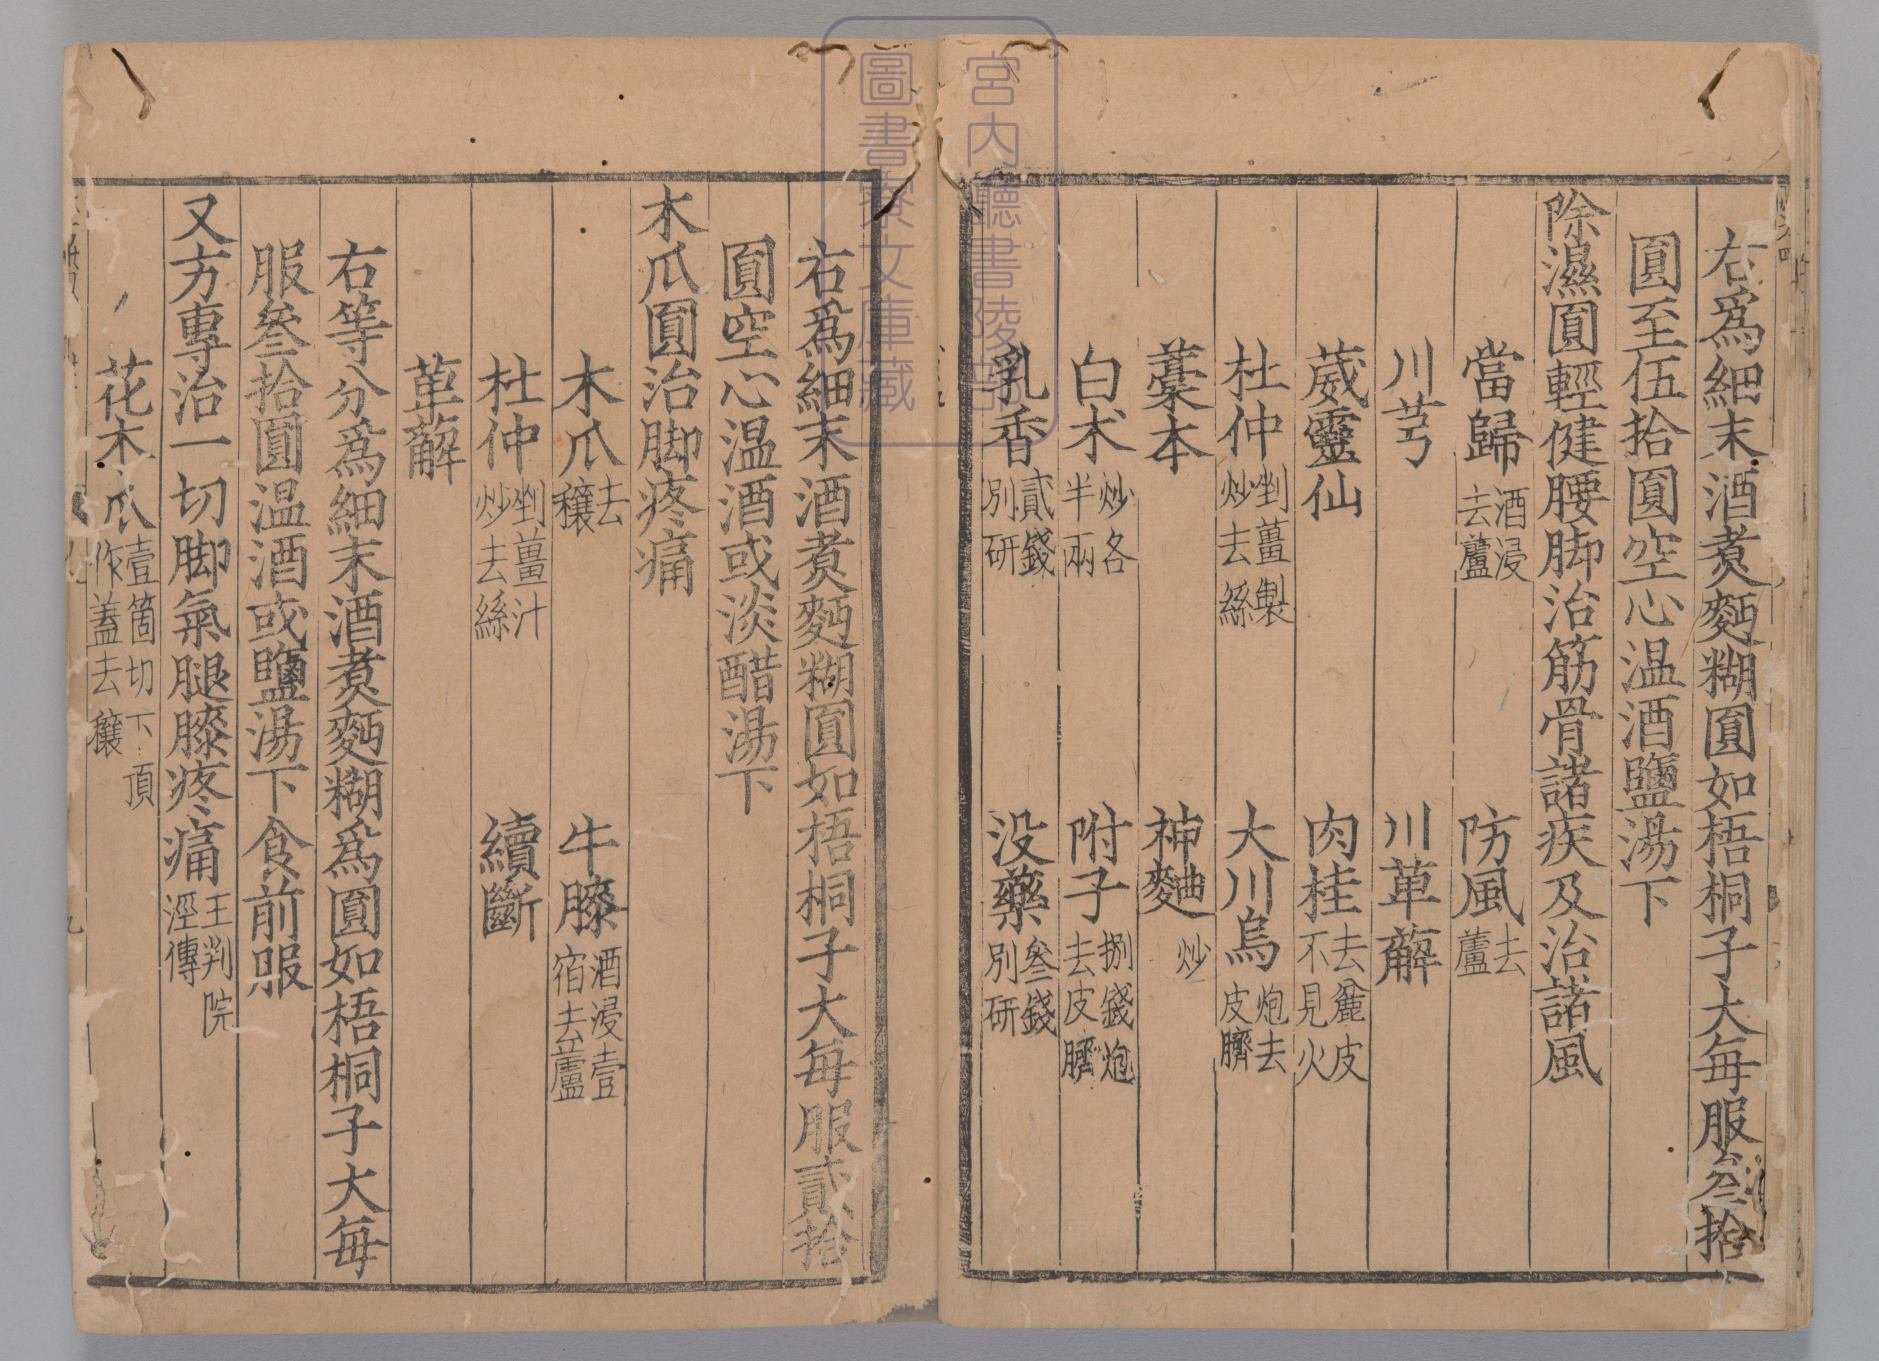 右爲細末酒煮麪糊圓如梧桐子大每服叁拾
圓至伍拾圓空心温酒鹽湯下
除濕圓輕健腰脚治筋骨諸疾及治諸風
當歸 酒浸去蘆 防風 去蘆
川芎 川萆薢
葳靈仙 肉桂 去麄皮不見火
杜仲 剉薑製炒去絲 大川烏 炮去皮臍
藁本 神麯 炒
白朮 炒各半兩 附子 捌錢炮去皮臍
乳香 貳錢別研 没藥 叁錢別研
右爲細末酒煮麪糊圓如梧桐子大每服貳拾
圓空心温酒或淡醋湯下
木瓜圓治脚疼痛
木瓜 去穰 牛膝 酒浸壹宿去蘆
杜仲 剉薑汁炒去絲 續斷
萆薢
右等分爲細末酒煮麪糊爲圓如梧桐子大每
服叁拾圓温酒或鹽湯下食前服
又方專治一切脚氣腿膝疼痛 王判院經傳
花木瓜 壹箇切下頂作蓋去穰
宮内廳書陵部
圖書寮文庫藏